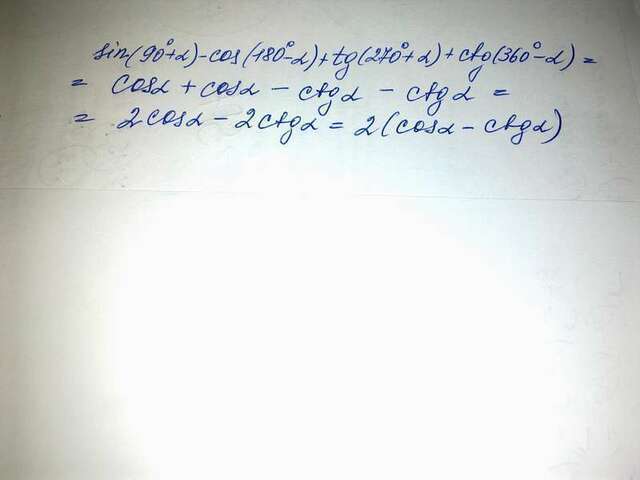 sin(90°+α)-cos(180°-α)+tg(270°+α)+ctg(360°-α)=
= cosα + cosα - ctgα - ctgα =
= 2cosα - 2ctgα = 2(cosα - ctgα)